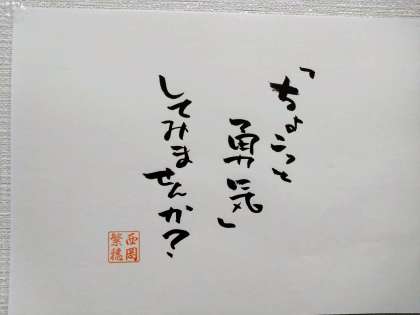 「ちょこっと
勇気」
してみま
せんか?
西岡
繁穂